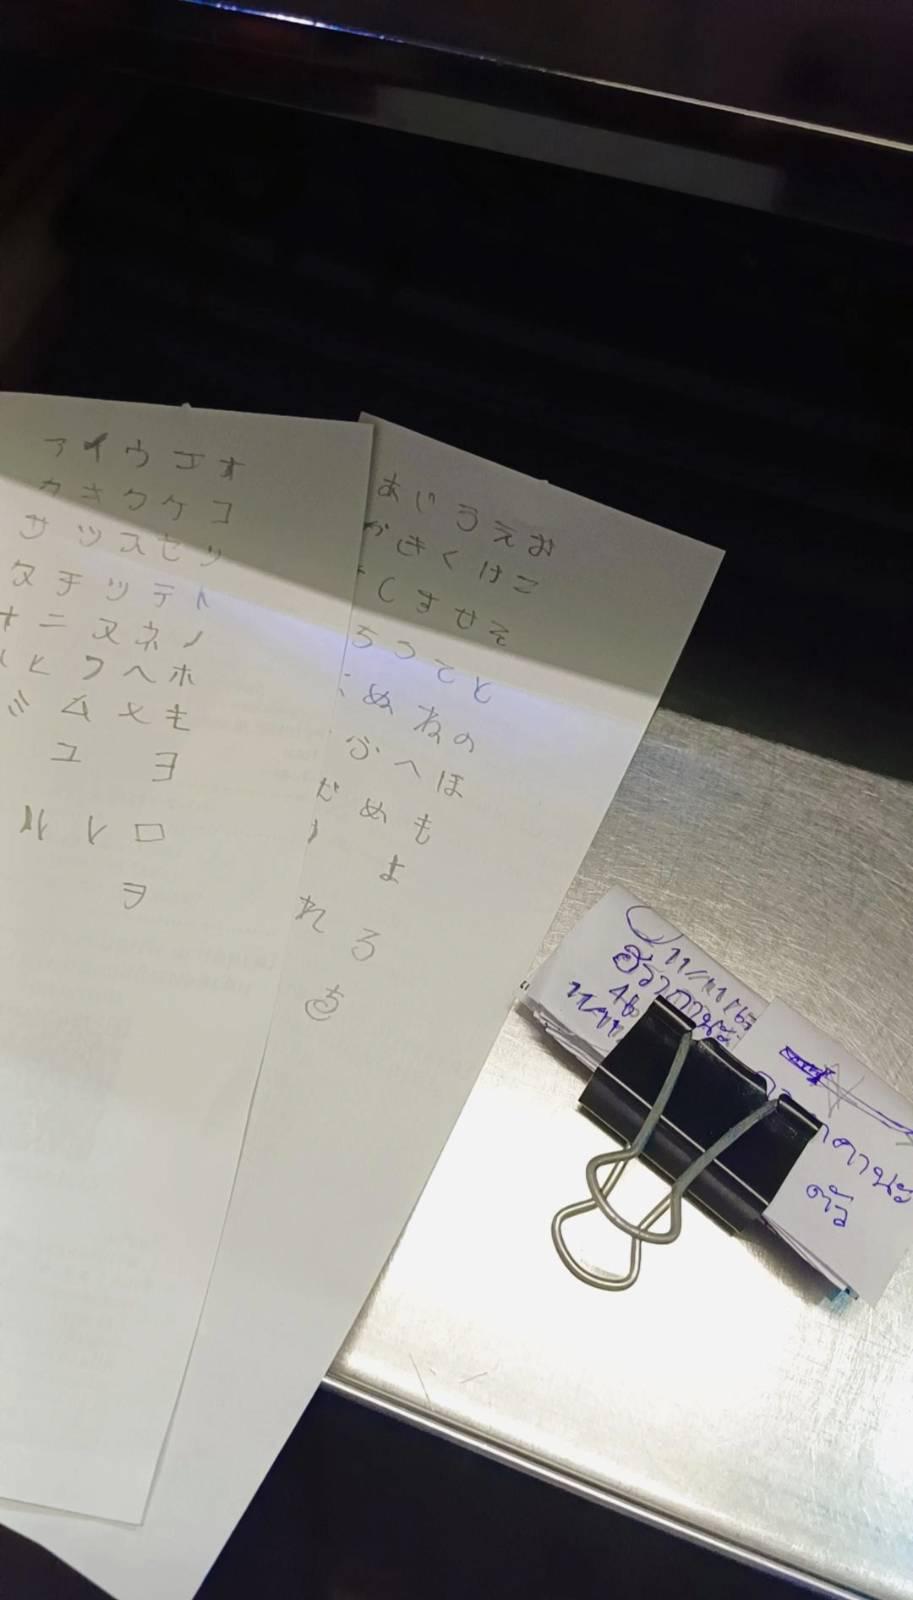 アイウエオ
カキクケコ
サツスセソ
タチツテト
オニヌネノ
ヒフヘホ
ミムメモ
ユヨ
ルレロ
ヲ
あいうえお
かきくけこ
しすせそ
ちつてと
ぬねの
ふへほ
めも
よ
れろ
を
ตัว